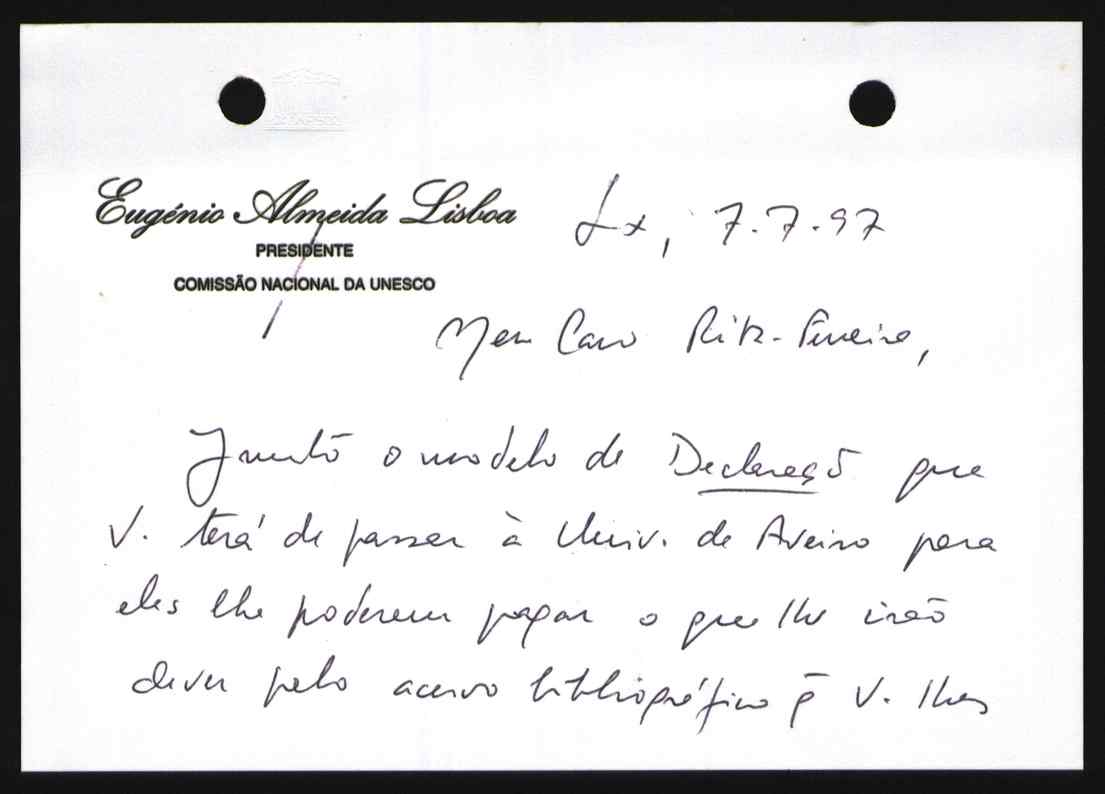 Eugénio Almeida Lisboa
PRESIDENTE
COMISSÃO NACIONAL DA UNESCO
Lx, 7.7.97
Meu Caro Ritz-Ferreira,
Junto o modelo de Declaração que
V. terá de passar à Univ. de Aveiro para
eles lhe poderem pagar o que lhe irão
dever pelo acervo bibliográfico q̄ V. lhes